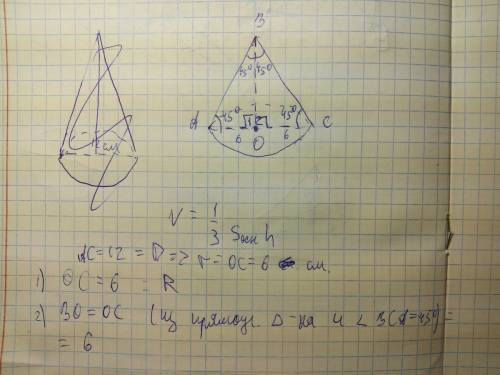 B
45° 45°
A 45° 45° C
6 O 6
12 см
V = 1/3 Sосн h
AC = 12 = D => r = OC = 6 см.
1) OC = 6 = R
2) BO = OC (из прямоуг. Δ-ка и ∠ BCA = 45°) =
= 6